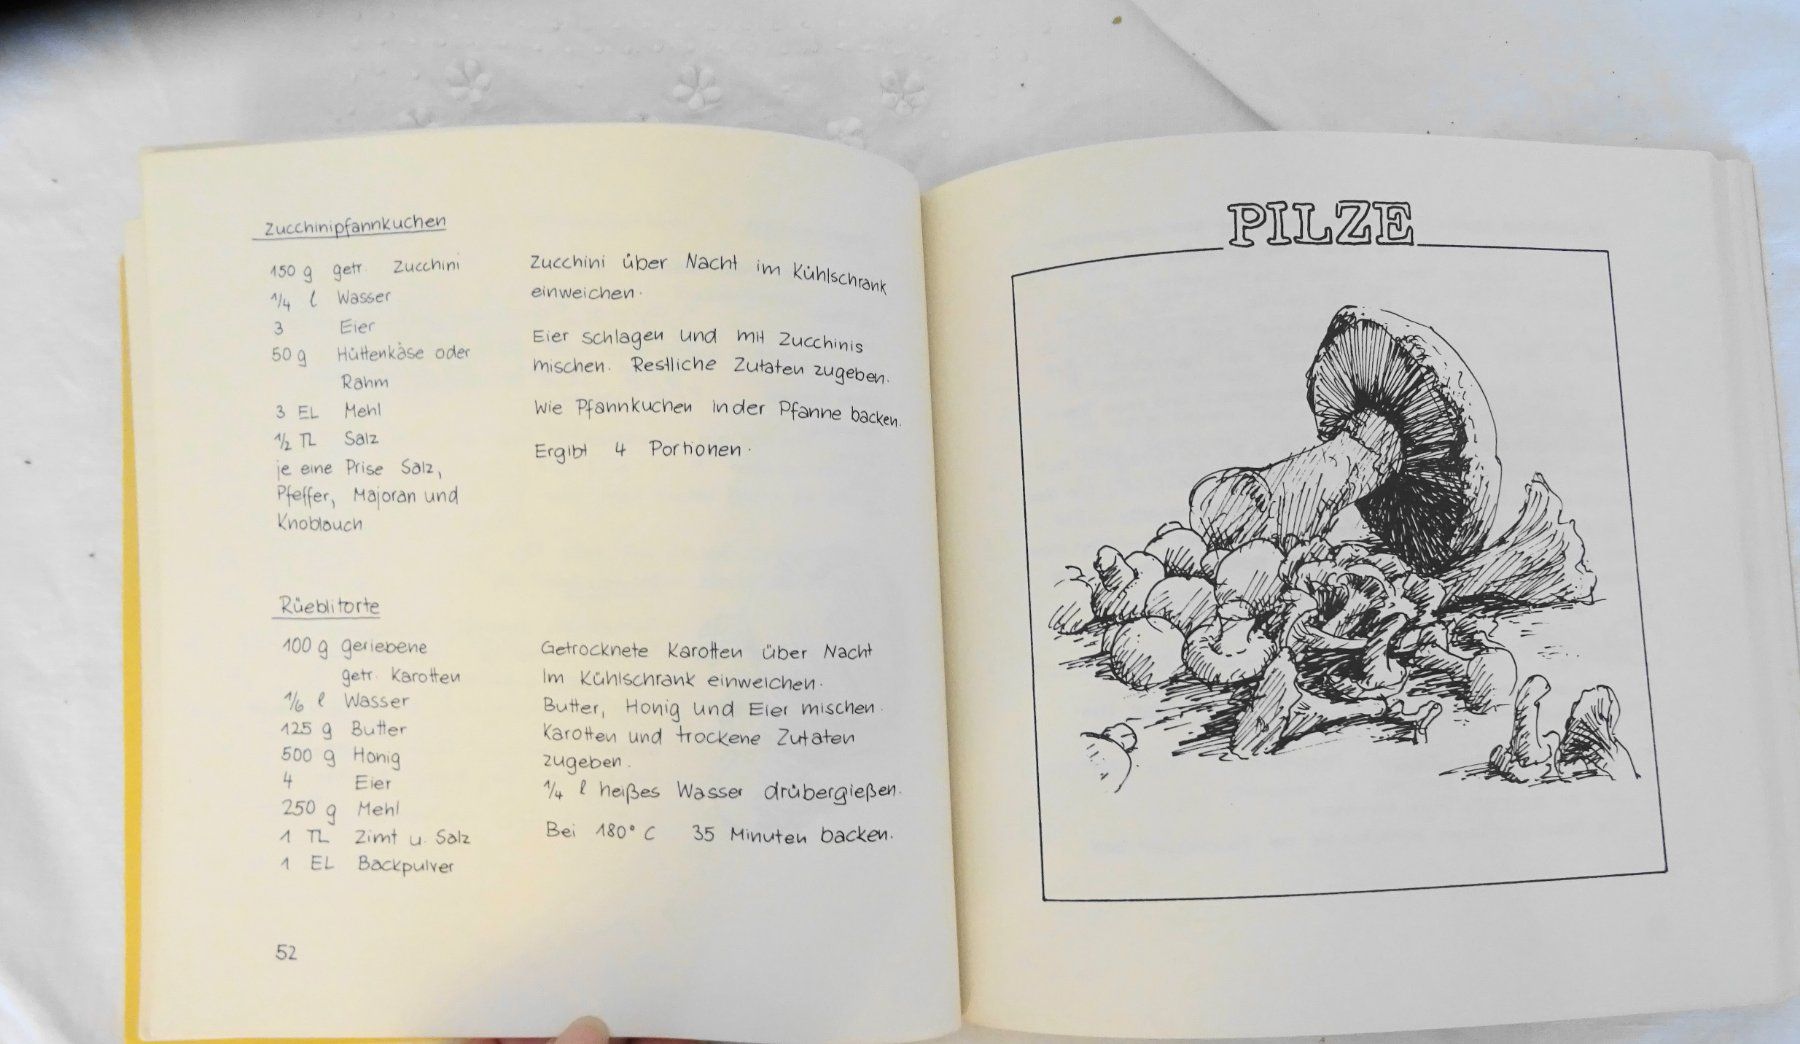 Zucchinipfannkuchen
150 g getr. Zucchini
1/4 l Wasser
3 Eier
50 g Hüttenkäse oder
Rahm
3 EL Mehl
1/2 TL Salz
je eine Prise Salz,
Pfeffer, Majoran und
Knoblauch
Zucchini über Nacht im Kühlschrank
einweichen.
Eier schlagen und mit Zucchinis
mischen. Restliche Zutaten zugeben.
Wie Pfannkuchen in der Pfanne backen.
Ergibt 4 Portionen.
Rüeblitorte
100 g geriebene
getr. Karotten
1/6 l Wasser
125 g Butter
500 g Honig
4 Eier
250 g Mehl
1 TL Zimt u. Salz
1 EL Backpulver
Getrocknete Karotten über Nacht
im Kühlschrank einweichen.
Butter, Honig und Eier mischen.
Karotten und trockene Zutaten
zugeben.
1/4 l heißes Wasser drübergießen.
Bei 180° C 35 Minuten backen.
52
PILZE